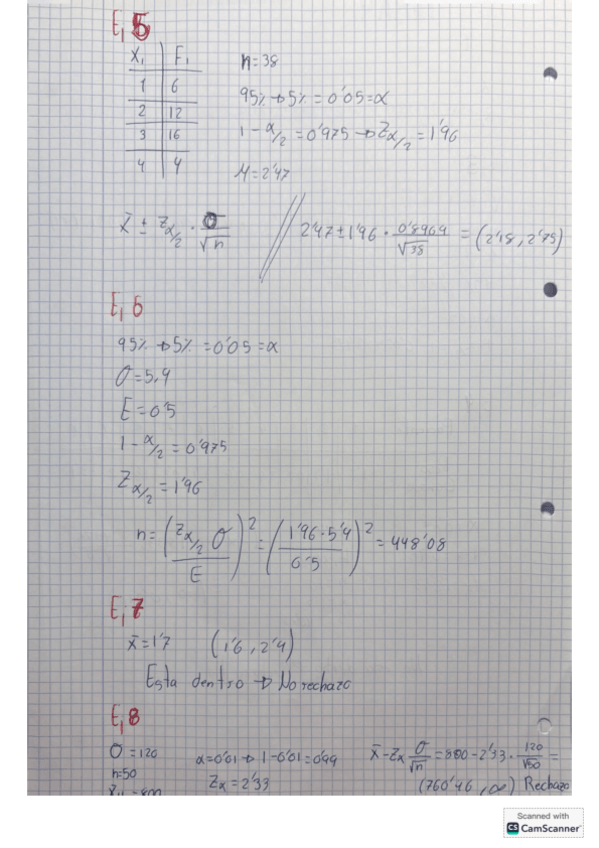 Ej 5
Xi Fi
1 6
2 12
3 16
4 4
n=38
95% → 5% = 0'05 = α
1 - α/2 = 0'975 → Zα/2 = 1'96
M = 2'47
x̄ ± Zα/2 · σ/√n // 2'47 ± 1'96 · 0'8964/√38 = (2'18, 2'75)
Ej 6
95% → 5% = 0'05 = α
σ = 5,4
E = 0'5
1 - α/2 = 0'975
Zα/2 = 1'96
n = (Zα/2 σ / E)² = (1'96 · 5'4 / 0'5)² = 448'08
Ej 7
x̄ = 1'7 (1'6, 2'4)
Esta dentro → No rechazo
Ej 8
σ = 120
n = 50
α = 0'01 → 1 - 0'01 = 0'99
Zα = 2'33
x̄ - Zα σ/√n = 800 - 2'33 · 120/√50 =
(760'46, ∞) Rechazo
Scanned with
CS CamScanner